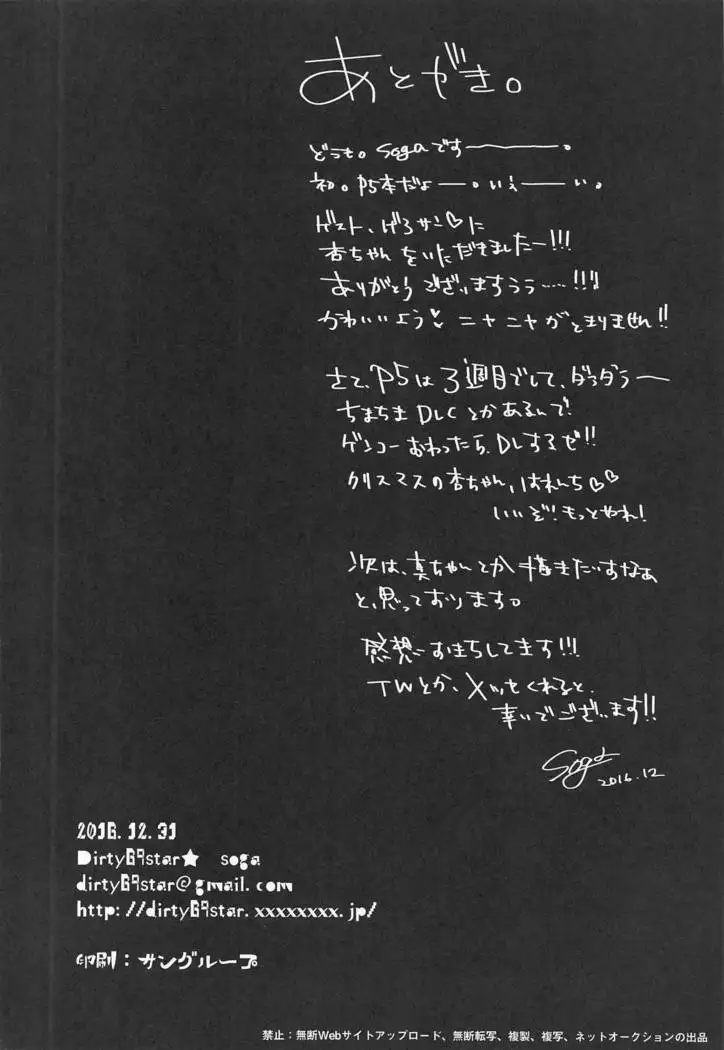 あとがき。
どうも。sogaですーーー。
初。P5本だよー。いえーい。
ゲスト、げろサン♡に
杏ちゃんをいただきましたー!!!
ありがとうございますうう……!!!
かわいいよう♥ニヤニヤがとまりません!!
さて、P5は3週目でして、ダラダラー
ちまちまDLCとかあるんで!
ゲンコーおわったら、DLするぜ!!
クリスマスの杏ちゃん、はれんち♡♡
いいぞ!もっとやれ!
次は、真ちゃんとか描きたいすなあ
と、思っております。
感想おまちしてます!!!
TWとか、メッセくれると、
幸いでございます!!
Soga
2016.12
2016.12.31
Dirty69star★ soga
dirty69star@gmail.com
http://dirty69star.xxxxxxxx.jp/
印刷：サングループ
禁止：無断Webサイトアップロード、無断転写、複製、複写、ネットオークションの出品